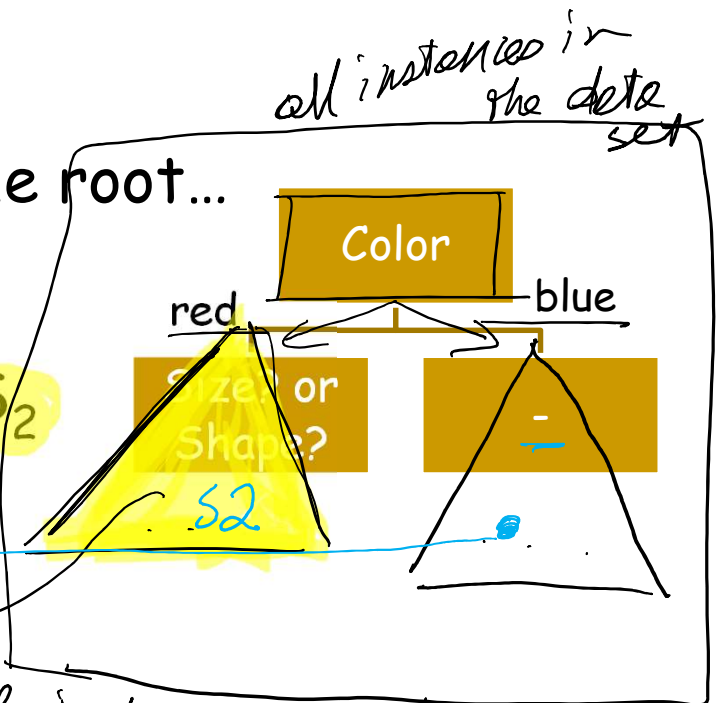 all instances in
the data
set
e root...
Color
red
blue
Size? or
Shape?
-
S2
S2